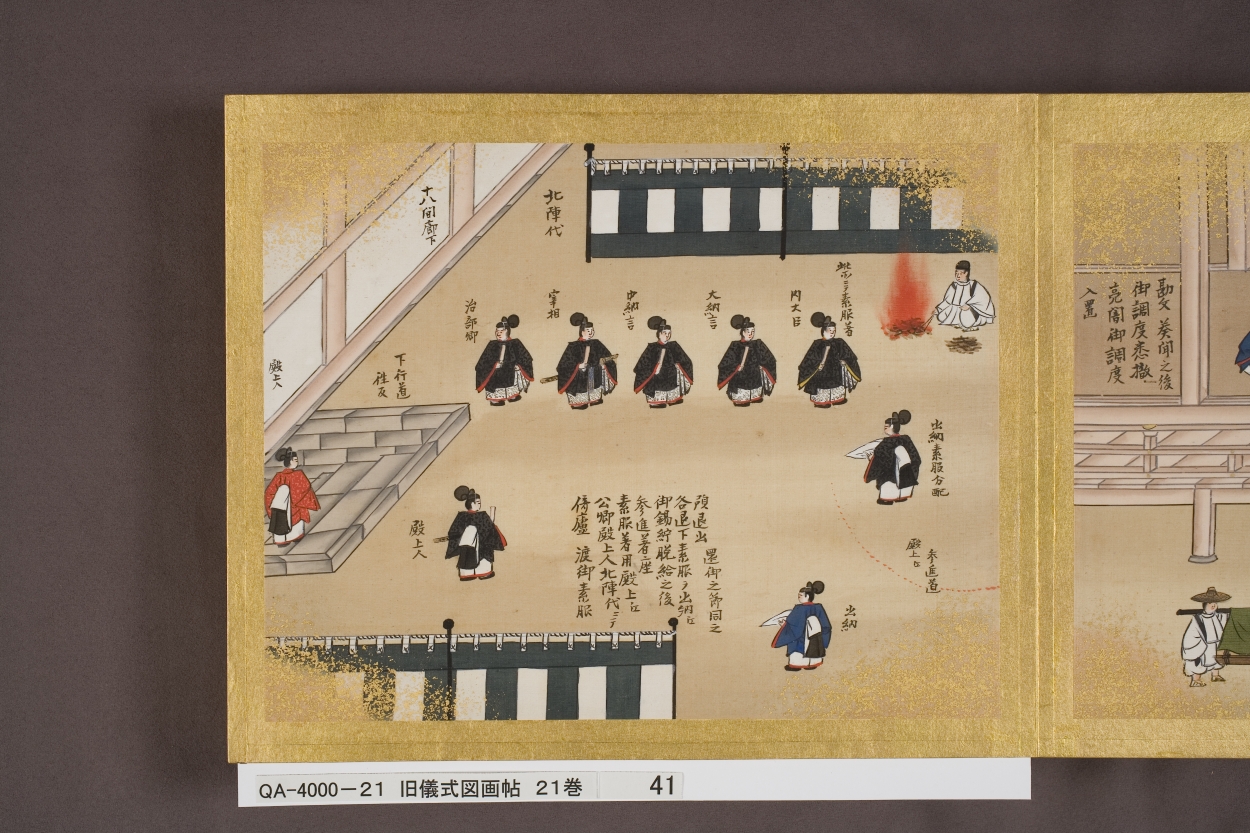 勘文 葵間之後
御調度悉撤
亮闇御調度
入置
此所ニテ素服着
内大臣
大納言
中納言
宰相
治部卿
北陣代
十八間廊下
下行道
往反
殿上人
出納素服分配
参進道
殿上江
出納
還御之節同之
殯退出
各退下素服ヲ出納江
御錫紵脱給之後
参進著座
素服着用殿上江
公卿殿上人北陣代ニテ
倚廬 渡御素服
殿上人
QA-4000-21 旧儀式図画帖 21巻 41